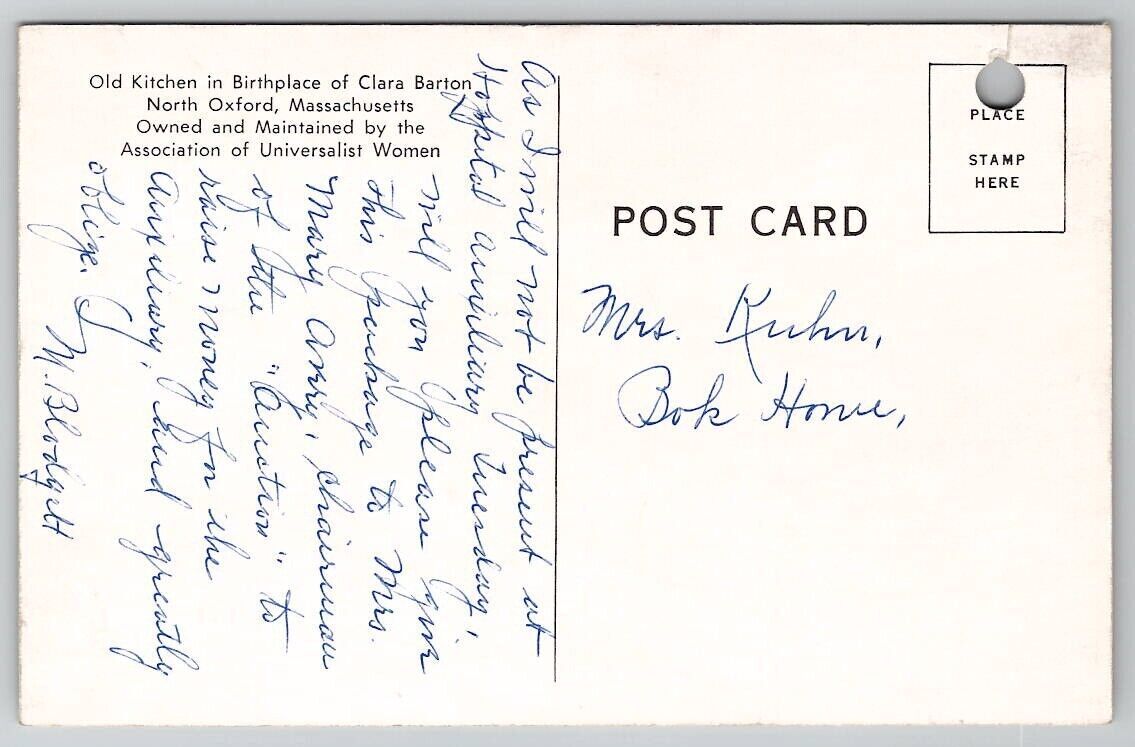 Old Kitchen in Birthplace of Clara Barton
North Oxford, Massachusetts
Owned and Maintained by the
Association of Universalist Women
As I will not be present at
Hospital auxiliary Tuesday,
will you please give
this package to Mrs.
Mary Anny, chairman
of the "Auction" to
raise money for the
Auxiliary, and greatly
oblige.
M. Blodgett
PLACE
STAMP
HERE
POST CARD
Mrs. Kuhn,
Bok Home,